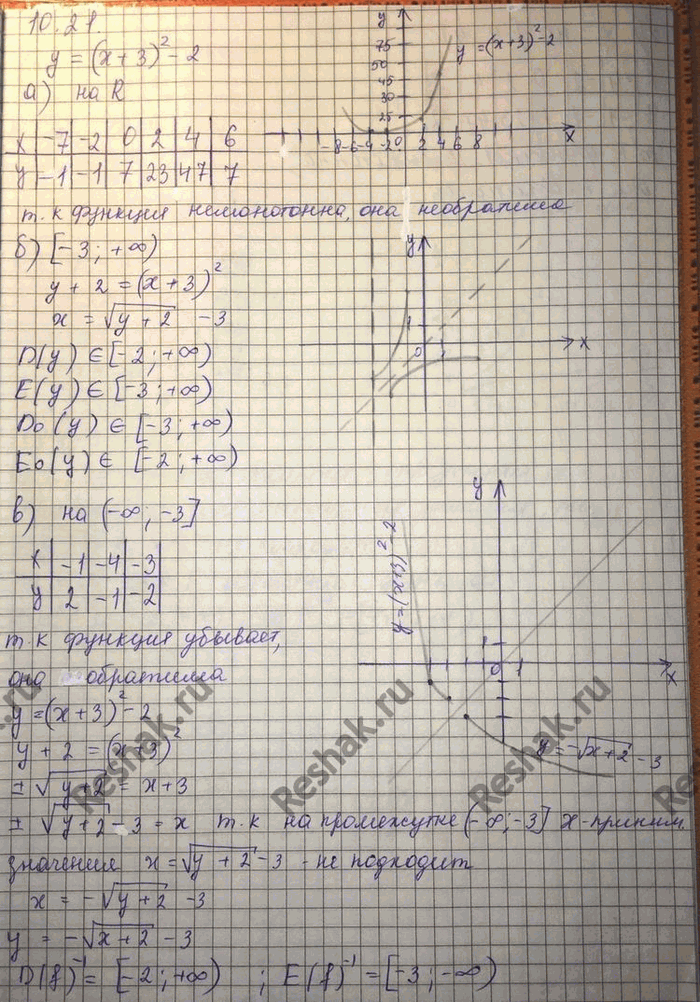 10.21
y = (x+3)² - 2
а) на R
x | -7 | -2 | 0 | 2 | 4 | 6
y | -1 | -1 | 7 | 23 | 47 | 7
y
75
50
45
30
25
-8 -6 -4 -2 0 2 4 6 8
x
y = (x+3)² - 2
т.к функция немонотонна, она необратима
б) [-3; +∞)
y + 2 = (x+3)²
x = √(y+2) - 3
D(y) ∈ [-2; +∞)
E(y) ∈ [-3; +∞)
Do(y) ∈ [-3; +∞)
Eo(y) ∈ [-2; +∞)
y
1
0 1
x
в) на (-∞; -3]
x | -1 | -4 | -3
y | 2 | -1 | -2
y
y = (x+3)² - 2
1
0 1
x
y = -√(x+2) - 3
т.к функция убывает,
она обратима
y = (x+3)² - 2
y + 2 = (x+3)²
± √(y+2) = x+3
± √(y+2) - 3 = x т.к на промежутке (-∞; -3] x - приним.
значения x = √(y+2) - 3 - не подходит
x = -√(y+2) - 3
y = -√(x+2) - 3
D(f)⁻¹ = [-2; +∞) ; E(f)⁻¹ = [-3; -∞)
Reshak.ru
Reshak.ru
Reshak.ru